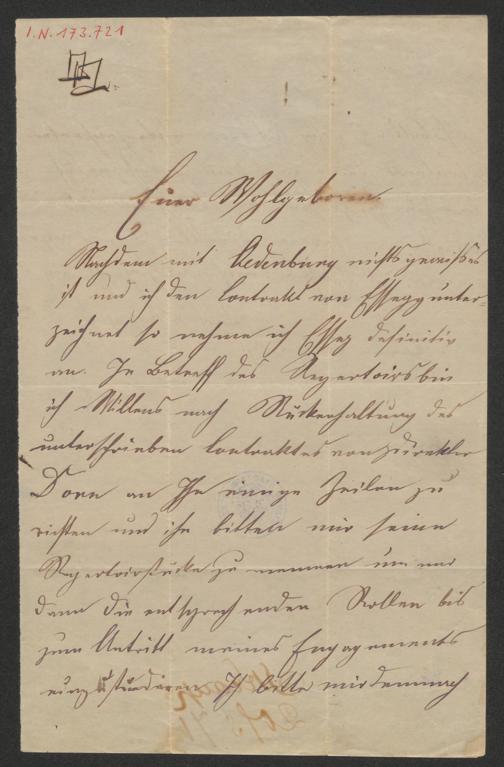 I.N. 173.721
Euer Wohlgeboren
Nachdem mit Oedenburg nichts gewißes
ist und ich den Contrakt von Essegg unter-
zeichnet so nehme ich Essegg definitiv
an. In Betreff des Repertoirs bin
ich Willens nach Rückerhaltung des
unterschrieben Contraktes von Direktor
Dorn an Ihn einige Zeilen zu
richten und ihn bitten mir seine
Repertoirstücke zu nennen um mir
dann die entsprechenden Rollen bis
zum Antritt meines Engagements
einzustudiren Ich bitte mir demnach